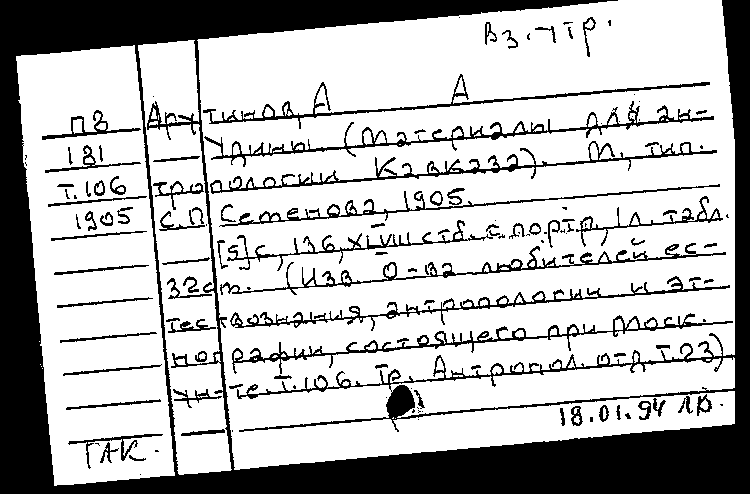 Вз. чтр.
Арутинов, А А
ПВ
181 Удины. (Материалы для ан-
т.106 тропологии Кавказа). М., тип.
1905 С.П Семенова, 1905.
[5]с, 136, XLVIII стб. с портр, 1 л. табл.
32см. (Изв. О-ва любителей ес-
тествознания, антропологии и эт-
нографии, состоящего при Моск.
ун-те. Т.106. Тр. Антропол. отд. Т.23)
18.01.94 ЛВ.
ГАК.